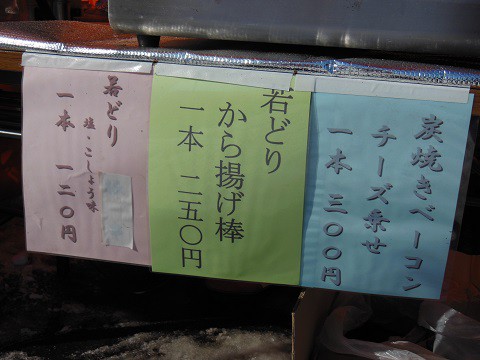 炭焼きベーコン
チーズ乗せ
一本 三〇〇円
若どり
から揚げ棒
一本 二五〇円
若どり
塩・こしょう味
一本 一二〇円